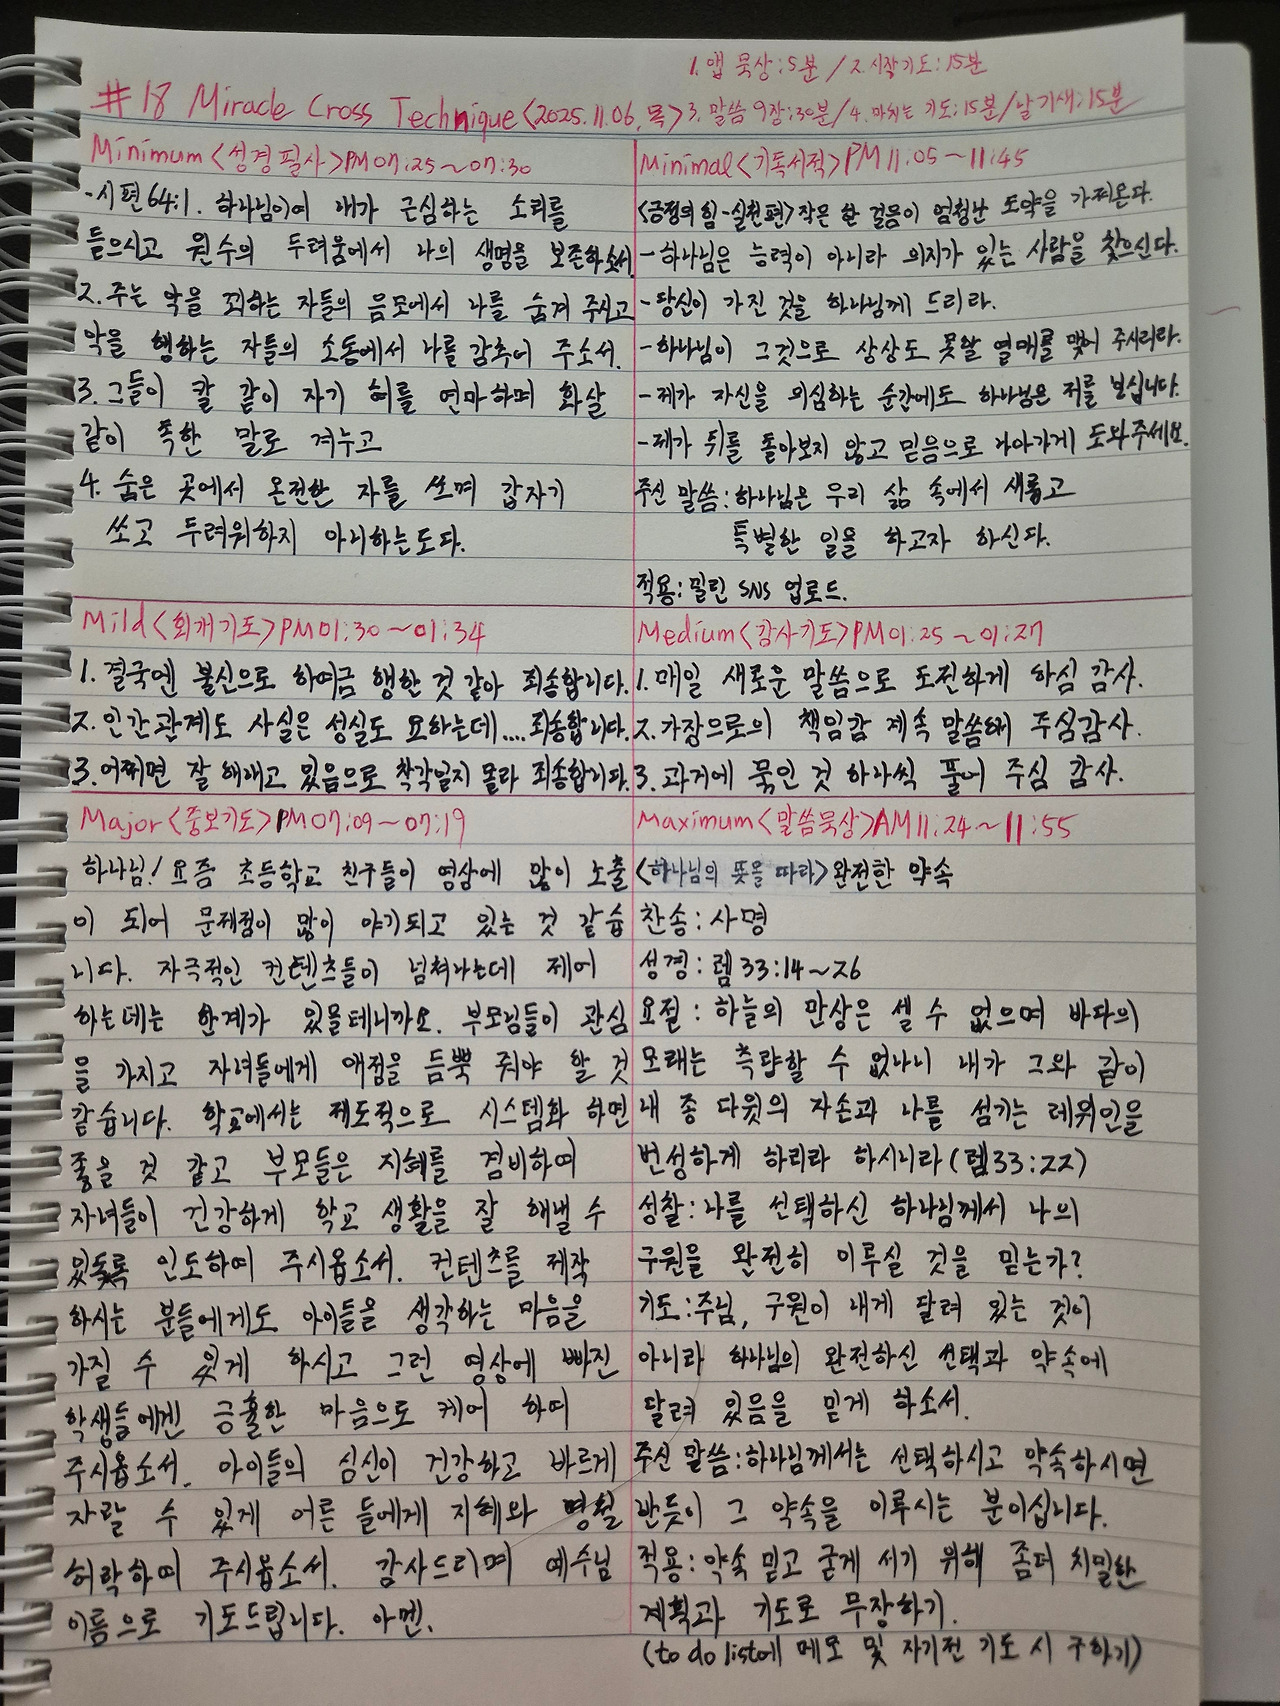 1. 앱 묵상:5분 / 2. 시작기도:15분
#18 Miracle Cross Technique<2025.11.06.목>3. 말씀 9장:30분/4. 마치는 기도:15분/날기새:15분
Minimum<성경필사>PM07:25~07:30
-시편64:1. 하나님이여 내가 근심하는 소리를
들으시고 원수의 두려움에서 나의 생명을 보존하소서.
2. 주는 악을 꾀하는 자들의 음모에서 나를 숨겨 주시고
악을 행하는 자들의 소동에서 나를 감추어 주소서.
3. 그들이 칼 같이 자기 혀를 연마하며 화살
같이 독한 말로 겨누고
4. 숨은 곳에서 온전한 자를 쏘며 갑자기
쏘고 두려워하지 아니하는도다.
Minimal<기독서적>PM11:05~11:45
<긍정의 힘-실천편>작은 한 걸음이 엄청난 도약을 가져온다.
-하나님은 능력이 아니라 의지가 있는 사람을 찾으신다.
-당신이 가진 것을 하나님께 드리라.
-하나님이 그것으로 상상도 못할 열매를 맺어 주시리라.
-제가 자신을 의심하는 순간에도 하나님은 저를 보십니다.
-제가 뒤를 돌아보지 않고 믿음으로 나아가게 도와주세요.
주신 말씀:하나님은 우리 삶 속에서 새롭고
특별한 일을 하고자 하신다.
적용:밀린 SNS 업로드.
Mild<회개기도>PM01:30~01:34
1. 결국엔 불신으로 하여금 행한 것 같아 죄송합니다.
2. 인간관계도 사실은 성실도 요하는데....죄송합니다.
3. 어쩌면 잘 해내고 있음으로 착각일지 몰라 죄송합니다.
Medium<감사기도>PM01:25~01:27
1. 매일 새로운 말씀으로 도전하게 하심 감사.
2. 가장으로의 책임감 계속 말씀해 주심감사.
3. 과거에 묶인 것 하나씩 풀어 주심 감사.
Major<중보기도>PM07:09~07:19
하나님! 요즘 초등학교 친구들이 영상에 많이 노출
이 되어 문제점이 많이 야기되고 있는 것 같습
니다. 자극적인 컨텐츠들이 넘쳐나는데 제어
하는데는 한계가 있을테니까요. 부모님들이 관심
을 가지고 자녀들에게 애정을 듬뿍 줘야 할 것
같습니다. 학교에서는 제도적으로 시스템화 하면
좋을 것 같고 부모들은 지혜를 겸비하여
자녀들이 건강하게 학교 생활을 잘 해낼 수
있도록 인도하여 주시옵소서. 컨텐츠를 제작
하시는 분들에게도 아이들을 생각하는 마음을
가질 수 있게 하시고 그런 영상에 빠진
학생들에겐 긍휼한 마음으로 케어 하여
주시옵소서. 아이들의 심신이 건강하고 바르게
자랄 수 있게 어른 들에게 지혜와 명철
허락하여 주시옵소서. 감사드리며 예수님
이름으로 기도드립니다. 아멘.
Maximum<말씀묵상>AM11:24~11:55
<하나님의 뜻을 따라>완전한 약속
찬송:사명
성경:렘33:14~26
요절:하늘의 만상은 셀 수 없으며 바다의
모래는 측량할 수 없나니 내가 그와 같이
내 종 다윗의 자손과 나를 섬기는 레위인을
번성하게 하리라 하시니라(렘33:22)
성찰:나를 선택하신 하나님께서 나의
구원을 완전히 이루실 것을 믿는가?
기도:주님, 구원이 내게 달려 있는 것이
아니라 하나님의 완전하신 선택과 약속에
달려 있음을 믿게 하소서.
주신 말씀:하나님께서는 선택하시고 약속하시면
반듯이 그 약속을 이루시는 분이십니다.
적용:약속 믿고 굳게 서기 위해 좀더 치밀한
계획과 기도로 무장하기.
(to do list에 메모 및 자기전 기도 시 구하기)